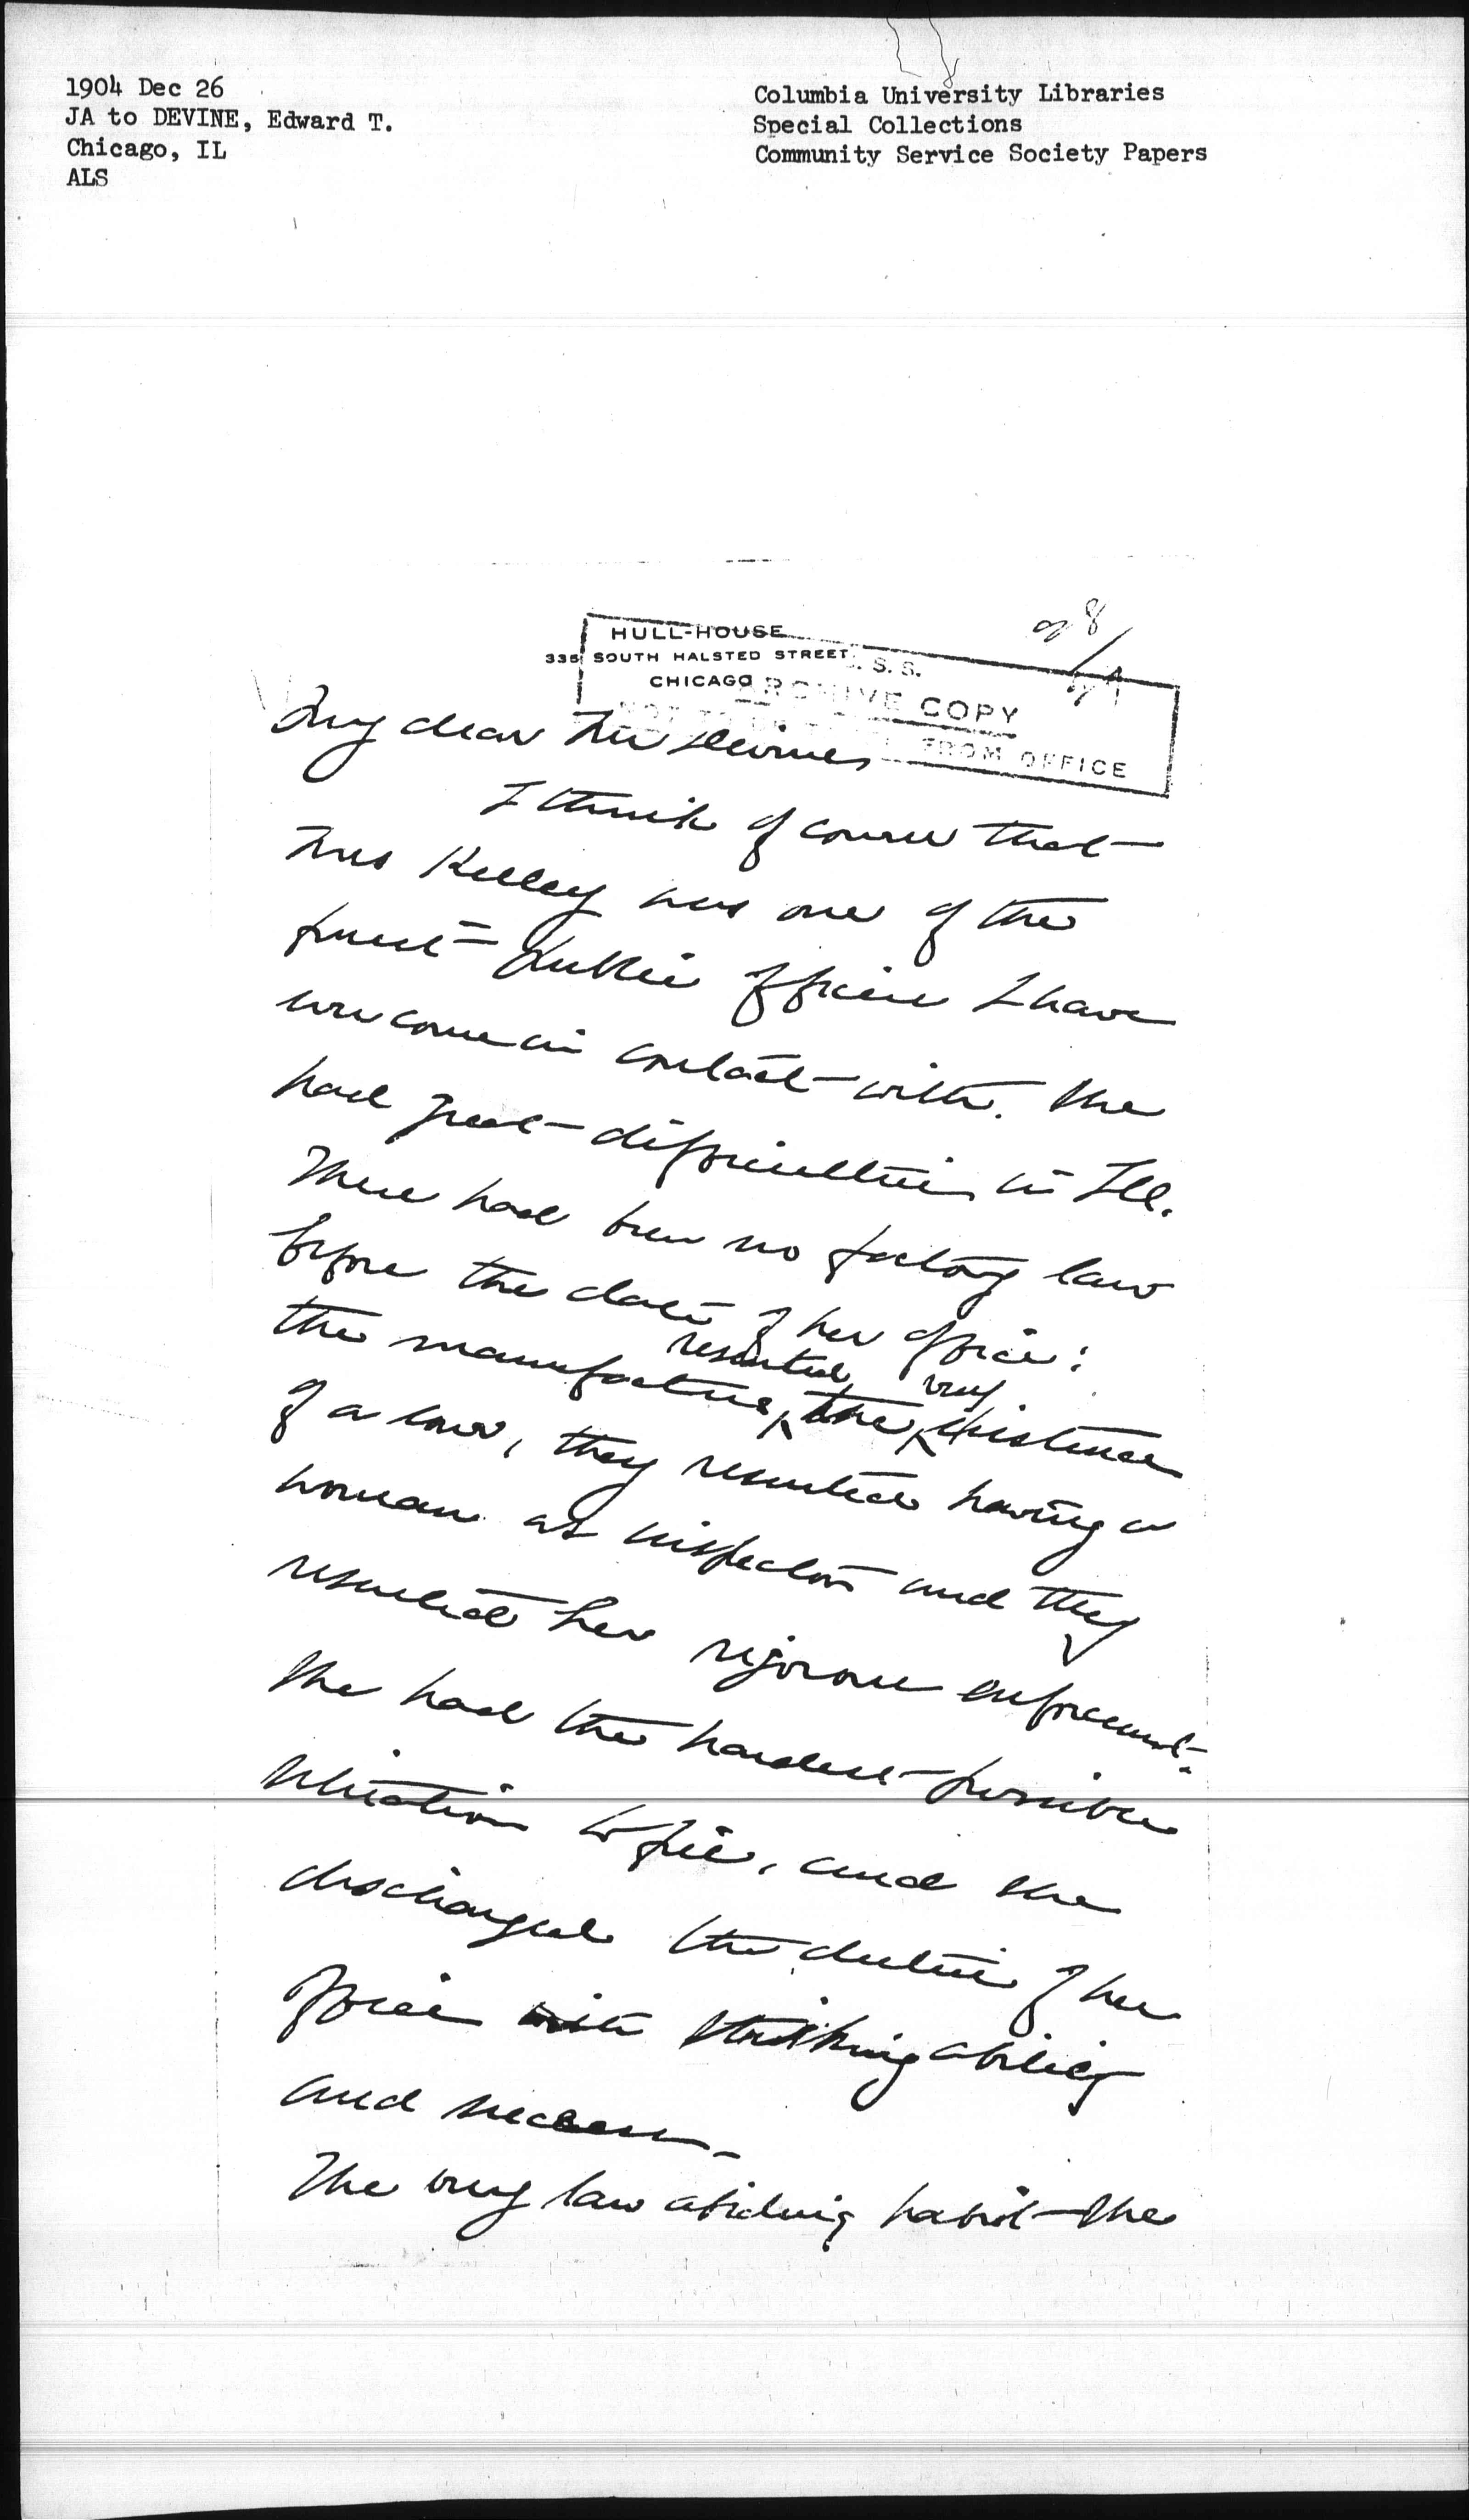 1904 Dec 26
JA to DEVINE, Edward T.
Chicago, IL
ALS
Columbia University Libraries
Special Collections
Community Service Society Papers
HULL-HOUSE
335 SOUTH HALSTED STREET
CHICAGO
S. S.
ARCHIVE COPY
FROM OFFICE
My dear Mr Devine,
I think of course that
Mrs Kelley was one of the
finest public officers I have
ever come in contact with. She
had great difficulties in Ill.
There had been no factory law
before the date of her office:
resented very
the manufacturers the existence
of a law, they resented having a
woman as inspector and they
resented her rigorous enforcement.
She had the hardest possible
situation to face, and she
discharged the duties of her
office with striking ability
and success.
The very law abiding habit the